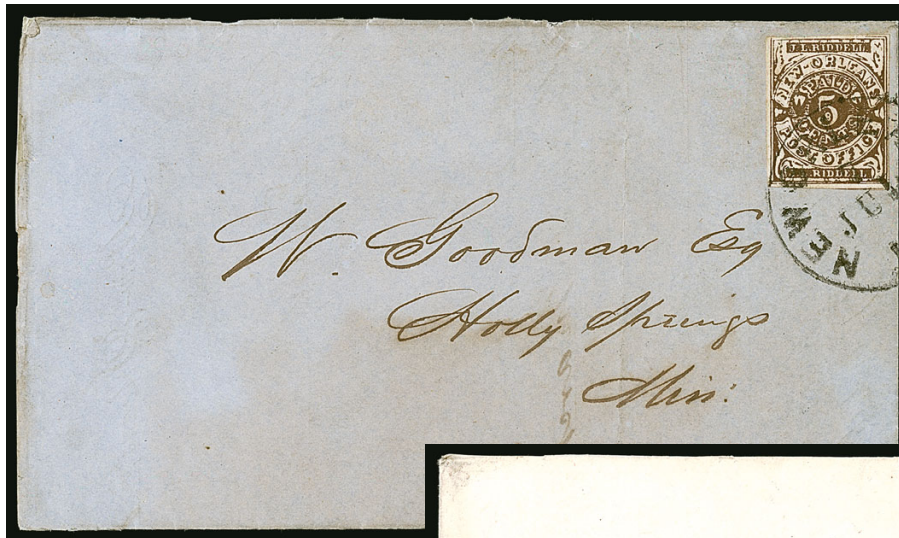 J.L.RIDDELL
NEW-ORLEANS
PAID
5
CENTS
POST OFFICE
J.L.RIDDELL
NEW
JUL
W. Goodman Esq
Holly Springs
Miss: